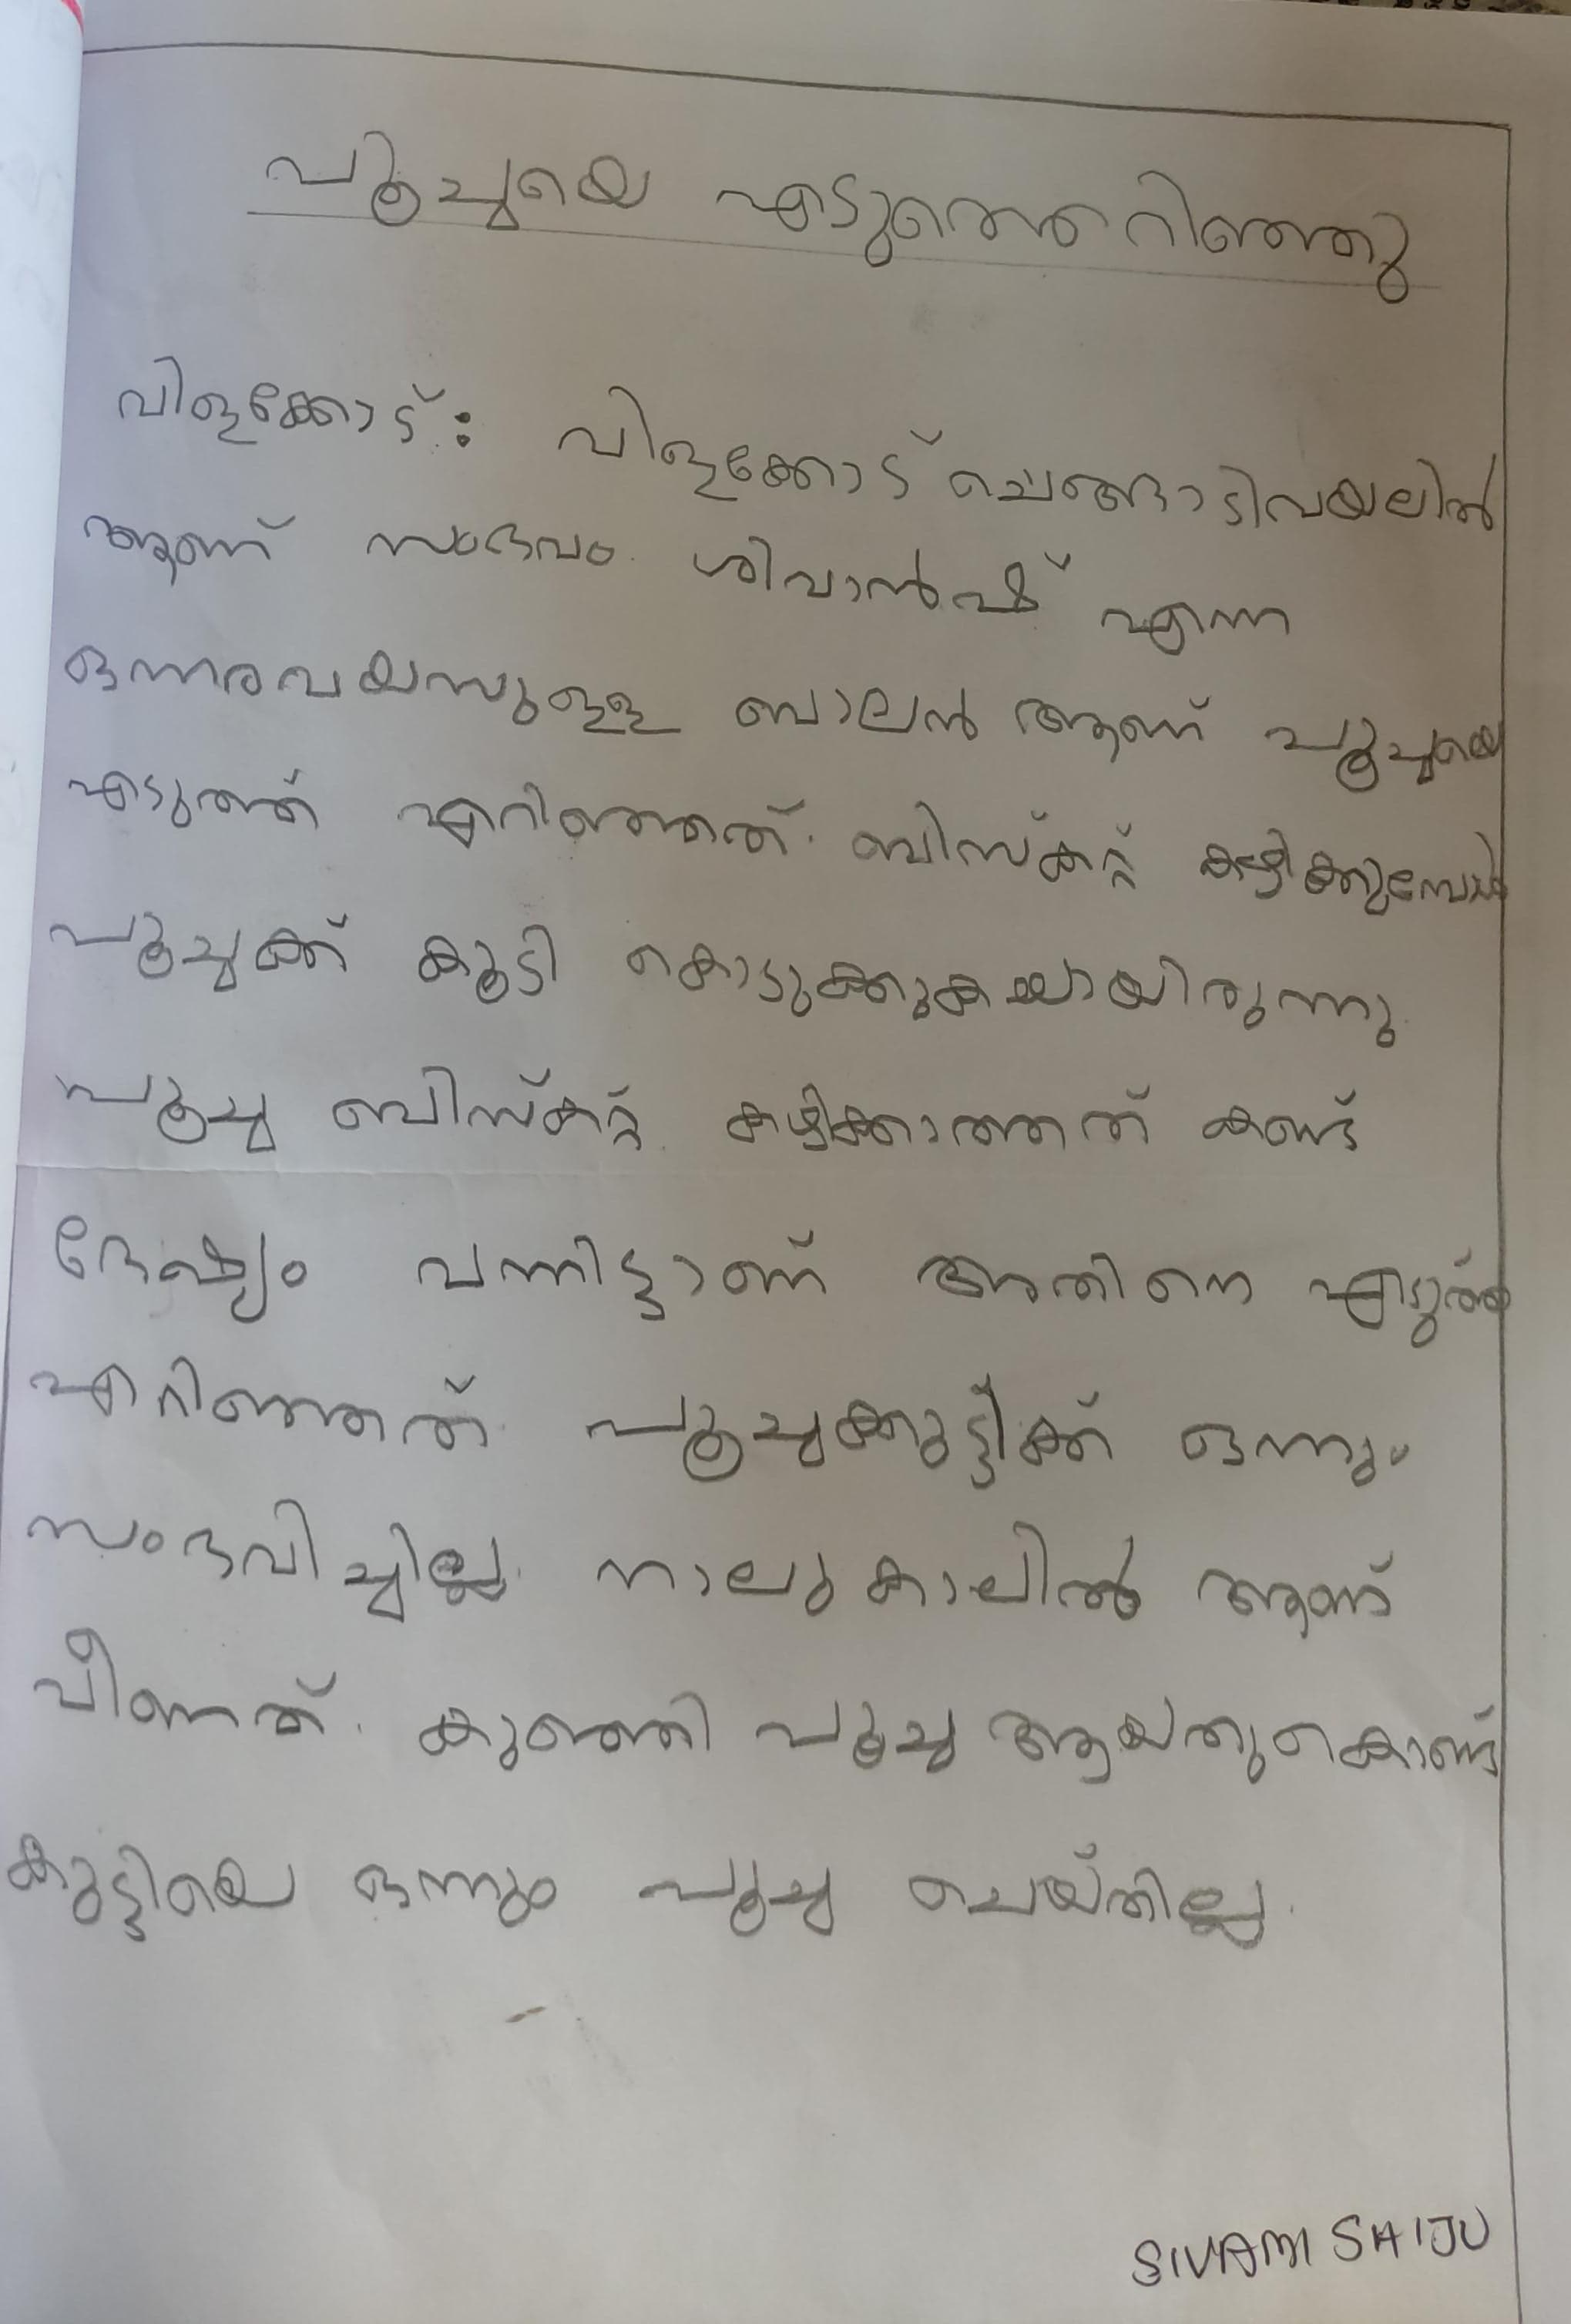 പൂച്ചയെ എടുത്തെറിഞ്ഞു
വിളക്കോട്: വിളക്കോട് ചെങ്ങാടിവയലിൽ
ആണ് സംഭവം. ശിവാൻഷ് എന്ന
ഒന്നരവയസുള്ള ബാലൻ ആണ് പൂച്ചയെ
എടുത്ത് എറിഞ്ഞത്. ബിസ്കറ്റ് കഴിക്കുമ്പോൾ
പൂച്ചക്ക് കൂടി കൊടുക്കുകയായിരുന്നു.
പൂച്ച ബിസ്കറ്റ് കഴിക്കാത്തത് കണ്ട്
ദേഷ്യം വന്നിട്ടാണ് അതിനെ എടുത്ത്
എറിഞ്ഞത്. പൂച്ചക്കുട്ടിക്ക് ഒന്നും
സംഭവിച്ചില്ല. നാലുകാലിൽ ആണ്
വീണത്. കുഞ്ഞി പൂച്ച ആയതുകൊണ്ട്
കുട്ടിയെ ഒന്നും പൂച്ച ചെയ്തില്ല.
SIVANI SHIJU